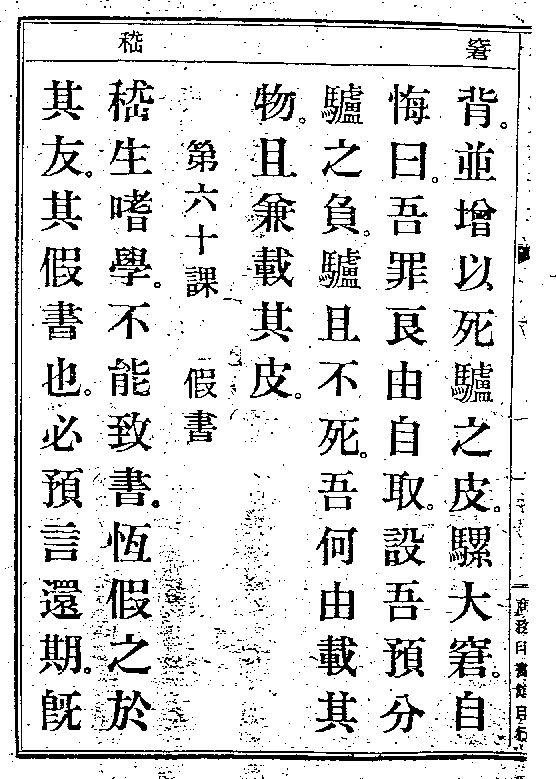 窘
嵇
背。並增以死驢之皮。騾大窘。自
悔曰。吾罪良由自取。設吾預分
驢之負。驢且不死。吾何由載其
物。且兼載其皮。
第六十課　假書
嵇生嗜學。不能致書。恆假之於
其友。其假書也。必預言還期。既
商務印書館